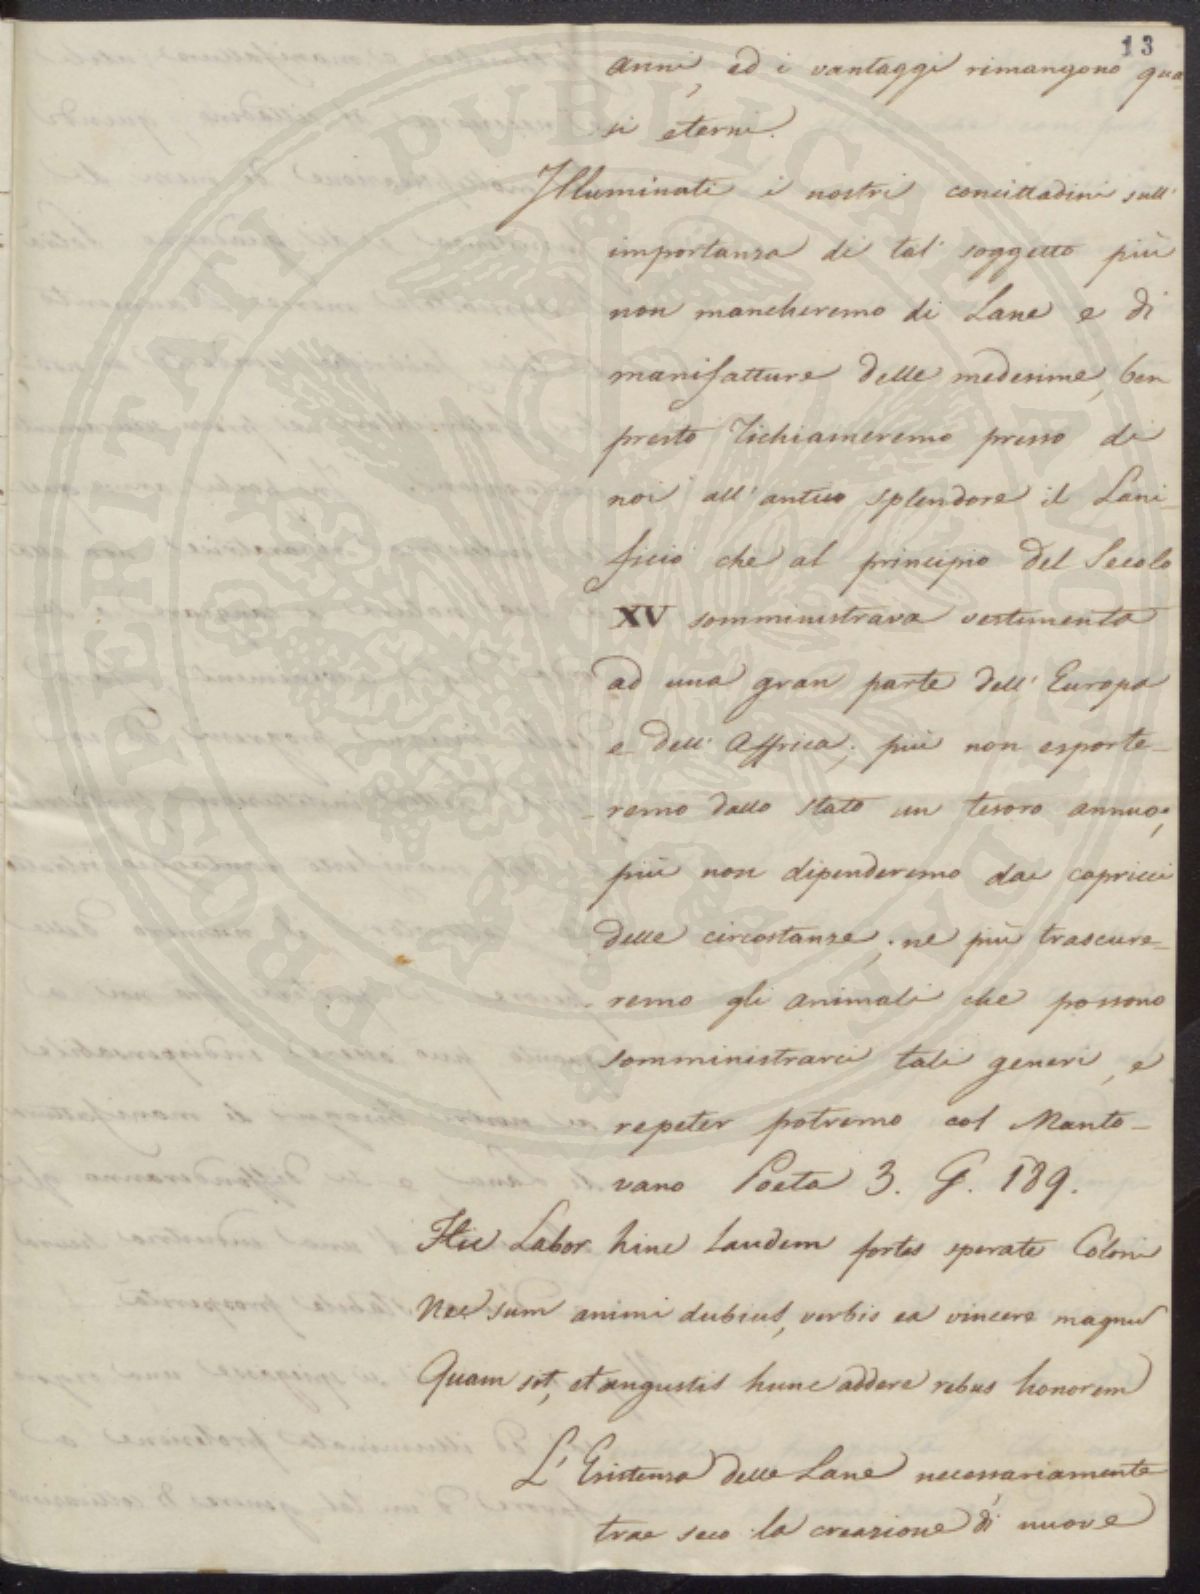 13
anni, ed i vantaggi rimangono qua-
si eterni.
Illuminati i nostri concittadini sull'
importanza di tal' soggetto più
non mancheremo di Lane e di
manifatture delle medesime, ben
presto richiameremo presso di
noi all'antico splendore il Lani-
ficio che al principio del Secolo
XV somministrava vestimenta
ad una gran parte dell'Europa
e dell'Affrica; più non esporte-
remo dallo stato un tesoro annuo;
più non dipenderemo dai capricci
delle circostanze; ne più trascure-
remo gli animali che possono
somministrarci tali generi, e
repeter potremo col Manto-
vano Poeta 3. G. 189.
Hic Labor hinc Laudem fortes sperate Coloni
Nec sum animi dubius, verbis ea vincere magnu
Quam sit, et angustis hunc addere rebus honorem
L'Esistenza delle Lane necessariamente
trae seco la creazione di nuove
PROSPERITATI PUBLICAE AUGENDAE